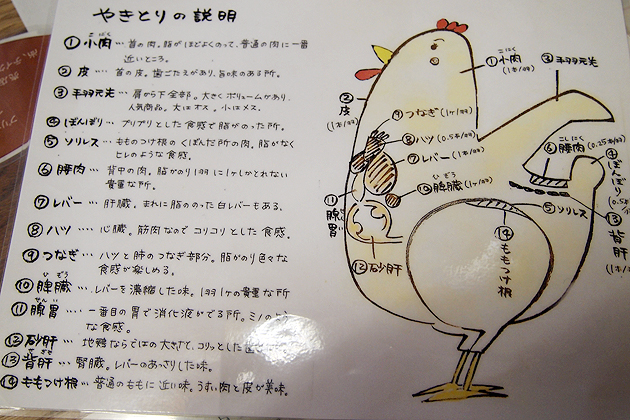 やきとりの説明
こにく
①小肉…首の肉。脂がほどよくのって、普通の肉に一番
近いところ。
②皮…首の皮。歯ごたえがあり、旨味のある所。
③手羽元先…肩から下全部。大きくボリュームがあり、
人気商品。大はオス。小はメス。
④ぼんぼり…プリプリとした食感で脂がのった所。
⑤ソリレス…もものつけ根のくぼんだ所の肉。脂がなく
ヒレのような食感。
⑥腰肉…背中の肉。脂がのり1羽に1ヶしかとれない
貴重な所。
⑦レバー…肝臓。まれに脂ののった白レバーもある。
⑧ハツ…心臓。筋肉なのでコリコリとした食感。
⑨つなぎ…ハツと肺のつなぎ部分。脂がのり色々な
食感が楽しめる。
ひぞう
⑩脾臓…レバーを濃縮した味。1羽1ヶの貴重な所
せんい
⑪腺胃…一番目の胃で消化液がでる所。ミノのよう
な食感。
⑫砂肝…地鶏ならではの大きさで、コリっとした
⑬背肝…腎臓。レバーのあっさりした味。
⑭ももつけ根…普通のももに近い味。うすい肉と皮が美味。
こにく
①小肉
(1本/羽)
③手羽元先
②皮
(1本/羽)
⑨つなぎ(1ヶ/羽)
⑧ハツ(0.5本/羽)
⑦レバー(1本/羽)
ひぞう
⑩脾臓(1ヶ/羽)
⑪腺胃
⑫砂肝
こしにく
⑥腰肉(0.25本/羽)
④ぼんぼり
(0.5本
⑤ソリレス
⑬背肝
⑭ももつけ根